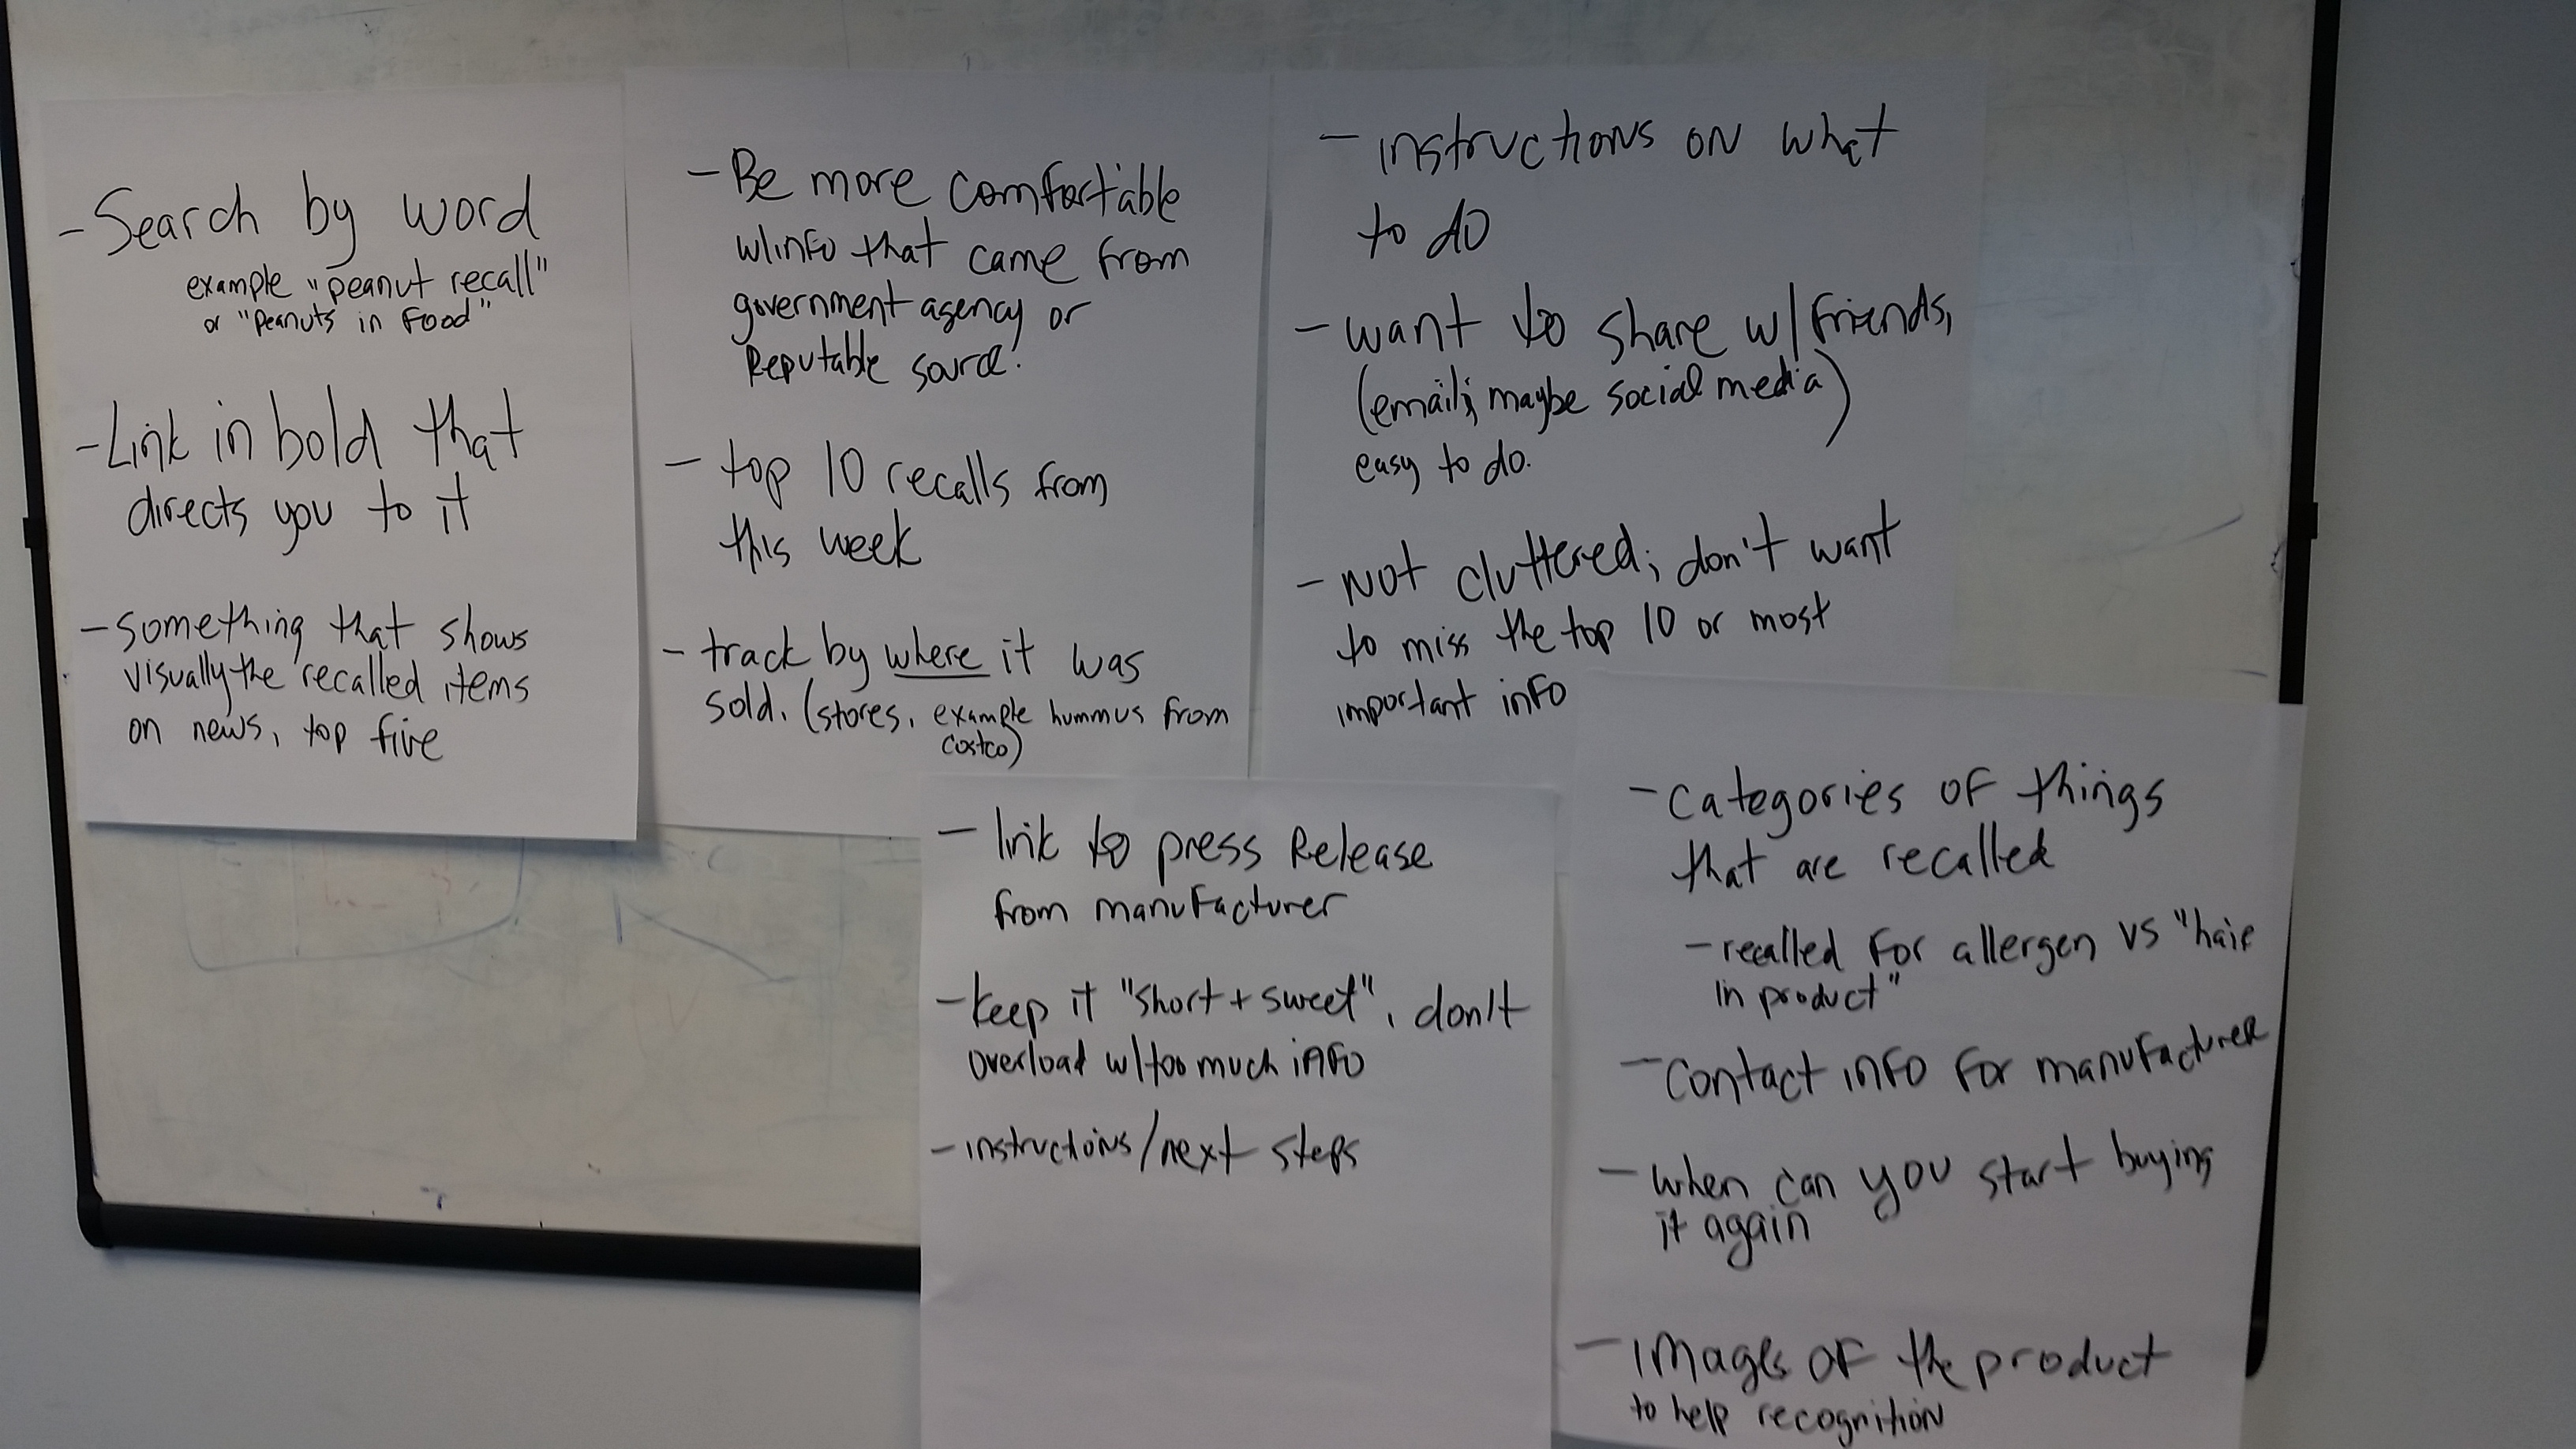 - Search by word
example "peanut recall"
or "Peanuts in food"
- Link in bold that
directs you to it
- something that shows
visually the recalled items
on news, top five
- Be more comfortable
w/info that came from
government agency or
Reputable source!
- top 10 recalls from
this week
- track by where it was
sold. (stores, example hummus from
costco)
- instructions on what
to do
- want to share w/friends,
(email; maybe social media)
easy to do.
- Not cluttered; don't want
to miss the top 10 or most
important info
- link to press Release
from manufacturer
- keep it "short + sweet", don't
overload w/too much info
- instructions/next steps
- Categories of things
that are recalled
- recalled for allergen vs "hair
in product"
- Contact info for manufacturer
- when can you start buying
it again
- images of the product
to help recognition